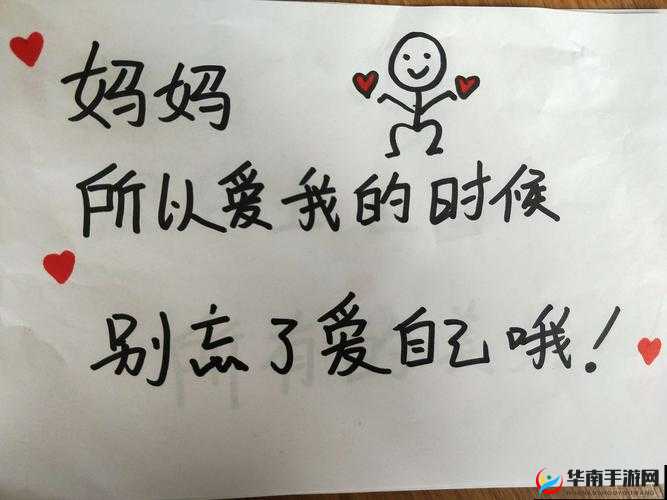 妈妈
所以爱我的时候
别忘了爱自己哦！
华南手游网